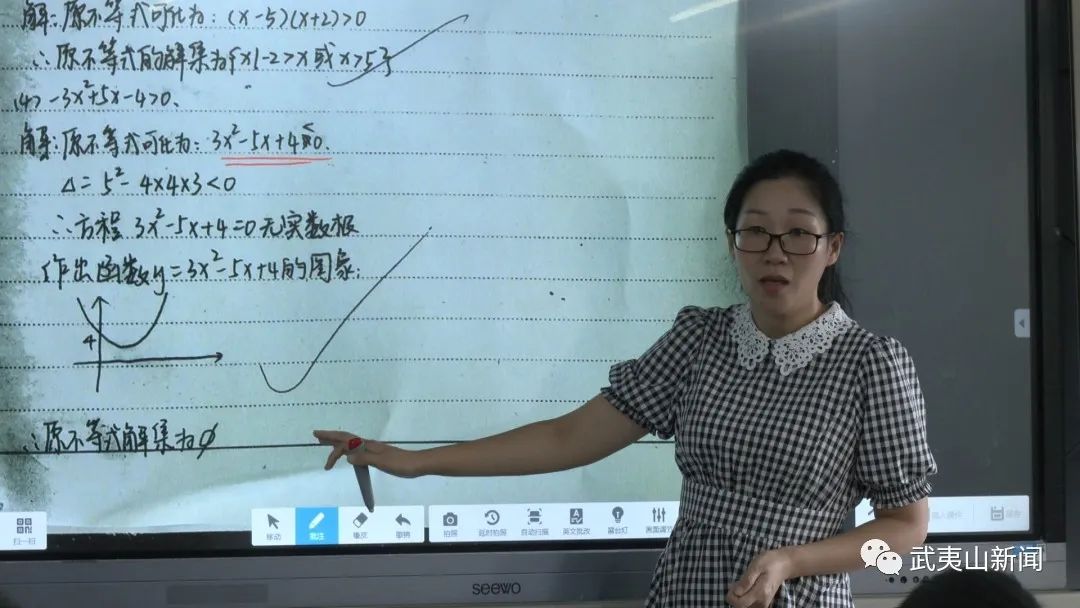 解:原不等式可化为:(x-5)(x+2)>0
∴原不等式的解集为{x|-2>x或x>5}
(4) -3x²+5x-4>0.
解:原不等式可化为:3x²-5x+4<0.
Δ=5²-4×4×3<0
∴方程3x²-5x+4=0无实数根
作出函数y=3x²-5x+4的图象:
4
∴原不等式解集为∅
扫一扫
移动 批注 橡皮 撤销 拍照 延时拍照 自动扫描 英文批改 留台灯 画面调节
保存
seewo
武夷山新闻